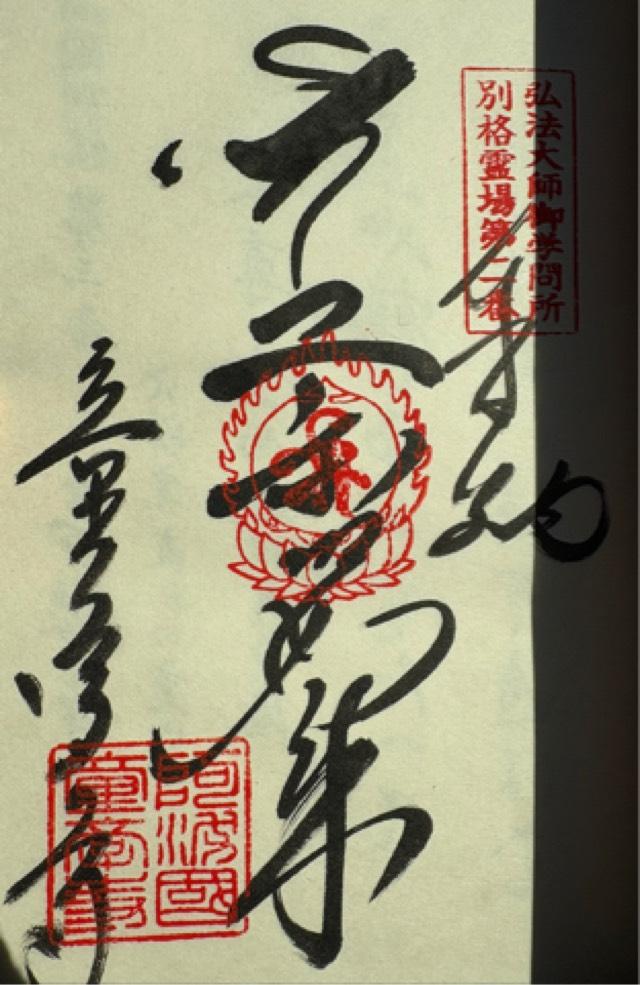 弘法大師御学問所
別格霊場第二番
奉納
薬師如来
童学寺
阿波國
童学寺